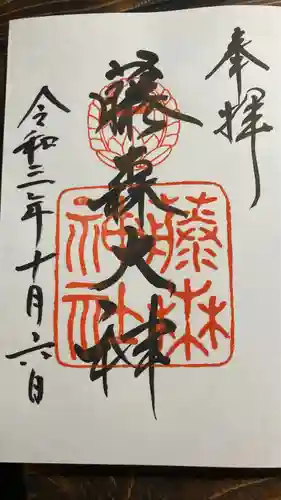 奉拝
藤森大神
藤森
神社
令和三年十月六日